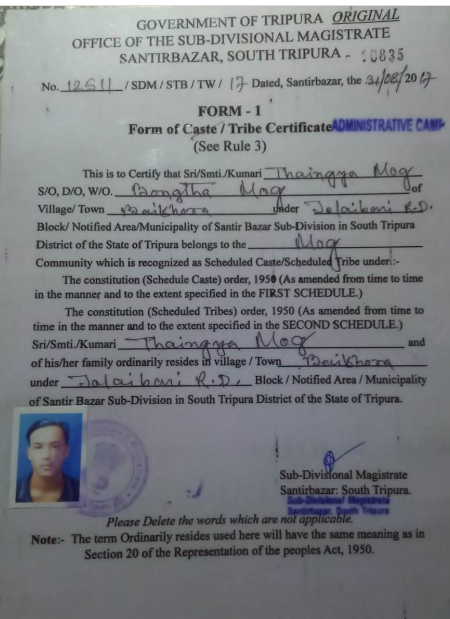 GOVERNMENT OF TRIPURA ORIGINAL
OFFICE OF THE SUB-DIVISIONAL MAGISTRATE
SANTIRBAZAR, SOUTH TRIPURA - 10835
No. 12511 / SDM / STB / TW / 17 Dated, Santirbazar, the 31/08/2017
FORM - 1
Form of Caste / Tribe Certificate ADMINISTRATIVE CAMP
(See Rule 3)
This is to Certify that Sri/Smti./Kumari Thaingya Mog
S/O, D/O, W/O. Bongtha Mog of
Village/ Town Baikhora under Jolaibari R.D.
Block/ Notified Area/Municipality of Santir Bazar Sub-Division in South Tripura
District of the State of Tripura belongs to the Mog
Community which is recognized as Scheduled Caste/Scheduled Tribe under:-
The constitution (Schedule Caste) order, 1950 (As amended from time to time
in the manner and to the extent specified in the FIRST SCHEDULE.)
The constitution (Scheduled Tribes) order, 1950 (As amended from time to
time in the manner and to the extent specified in the SECOND SCHEDULE.)
Sri/Smti./Kumari Thaingya Mog and
of his/her family ordinarily resides in village / Town Baikhora
under Jolaibari R.D. Block / Notified Area / Municipality
of Santir Bazar Sub-Division in South Tripura District of the State of Tripura.
Sub-Divisional Magistrate
Santirbazar: South Tripura.
Sub-Divisional Magistrate
Santirbazar, South Tripura
Please Delete the words which are not applicable.
Note:- The term Ordinarily resides used here will have the same meaning as in
Section 20 of the Representation of the peoples Act, 1950.